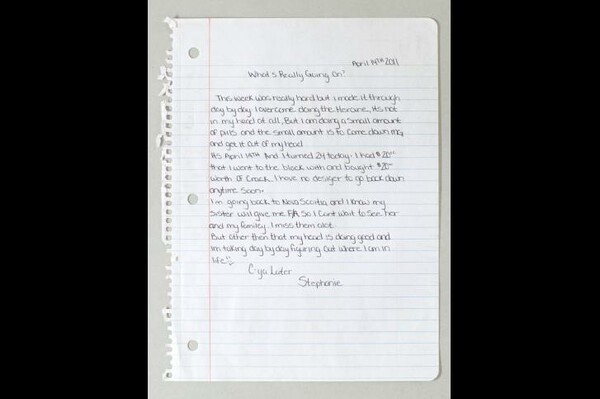 April 14TH 2011
What's Really Going On?
This week was really hard but I made it through
day by day. I overcame doing the Heroine, It's not
in my head at all, But I am doing a small amount
of pills and the small amount is to come down
and get it out of my head
It's April 14TH And I turned 24 today. I had $20.00
that I went to the block with and bought $20.00
worth of Crack. I have no desiger to go back down
anytime soon.
I'm going back to Nova Scotia and I know my
Sister will give me So I Can't wait to See her
and my family. I miss them alot.
But other then that my head is doing good and
I'm taking day by day figuring out where I am in
life!
C-ya Later
Stephanie